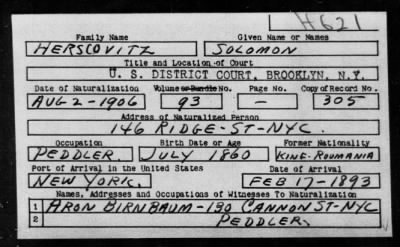 H621
Family Name Given Name or Names
HERSCOVITZ SOLOMON
Title and Location of Court
U. S. DISTRICT COURT, BROOKLYN, N.Y.
Date of Naturalization Volume or Bundle No. Page No. Copy of Record No.
AUG 2-1906 93 — 305
Address of Naturalized Person
146 RIDGE-ST-NYC.
Occupation Birth Date or Age Former Nationality
PEDDLER. JULY 1860 KING-ROUMANIA
Port of Arrival in the United States Date of Arrival
NEW YORK. FEB 17-1893
Names, Addresses and Occupations of Witnesses To Naturalization
1 ARON BIRNBAUM-190 CANNON ST-NYC
2 PEDDLER.